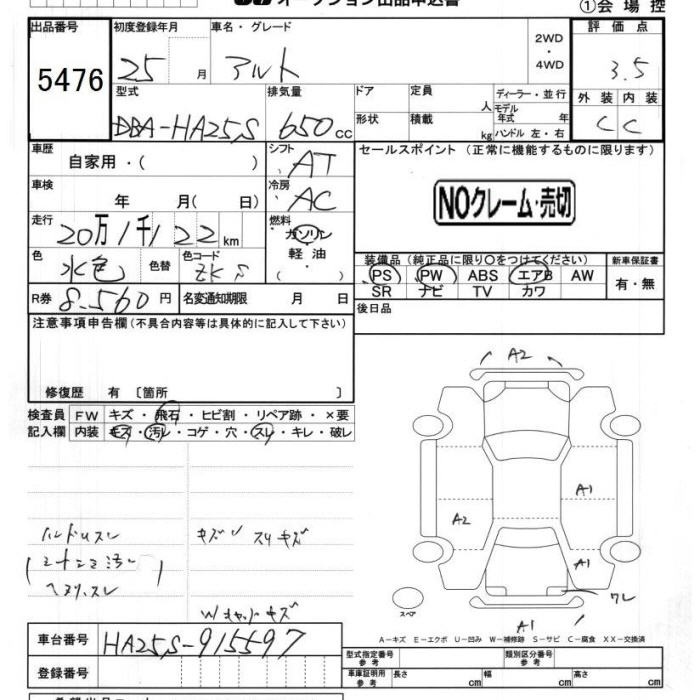 オークション出品申込書
①会場控
出品番号 初度登録年月 車名・グレード 2WD・4WD 評価点
5476 25 月 アルト 3.5
型式 排気量 ドア 定員 人 ディーラー・並行 外装 内装
DBA-HA25S 650 cc 形状 積載 kg モデル年式 年 ハンドル 左・右 C C
車歴 シフト セールスポイント (正常に機能するものに限ります)
自家用・( ) AT
車検 冷房
年 月( 日) AC NOクレーム・売切
走行 燃料
20万1千122km ガソリン
色 色替 色コード 軽油 装備品(純正品に限り○をつけてください) 新車保証書
水色 ZKS ( ) PS PW ABS エアB AW 有・無
R券 8,560円 名変通知期限 月 日 SR ナビ TV カワ
注意事項申告欄(不具合内容等は具体的に記入して下さい) 後日品
修復歴 有〔箇所 〕
A2
検査員 FW キズ・飛石・ヒビ割・リペア跡・×要
記入欄 内装 キズ・汚レ・コゲ・穴・スレ・キレ・破レ
A1
A2
ハンドルスレ キズ スリキズ
汚レ
A1
ワレ
スペア
A1
A-キズ E-エクボ U-凹み W-補修跡 S-サビ C-腐食 XX-交換済
車台番号 HA25S-915597 型式指定番号 参考 類別区分番号 参考
登録番号 車庫証明用 参考 長さ cm 幅 cm 高さ cm